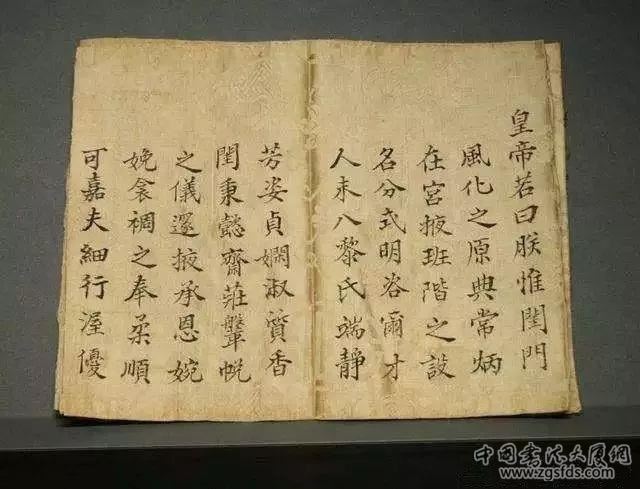 皇帝若曰朕惟閨門
風化之原典常炳
在宮掖班階之設
名分式明咨爾才
人末八黎氏端靜
芳姿貞嫻淑質香
閨秉懿齋莊鞶帨
之儀邃掖承恩婉
娩衾裯之奉柔順
可嘉夫細行渥優
中国书法大展網
www.zgsfds.com